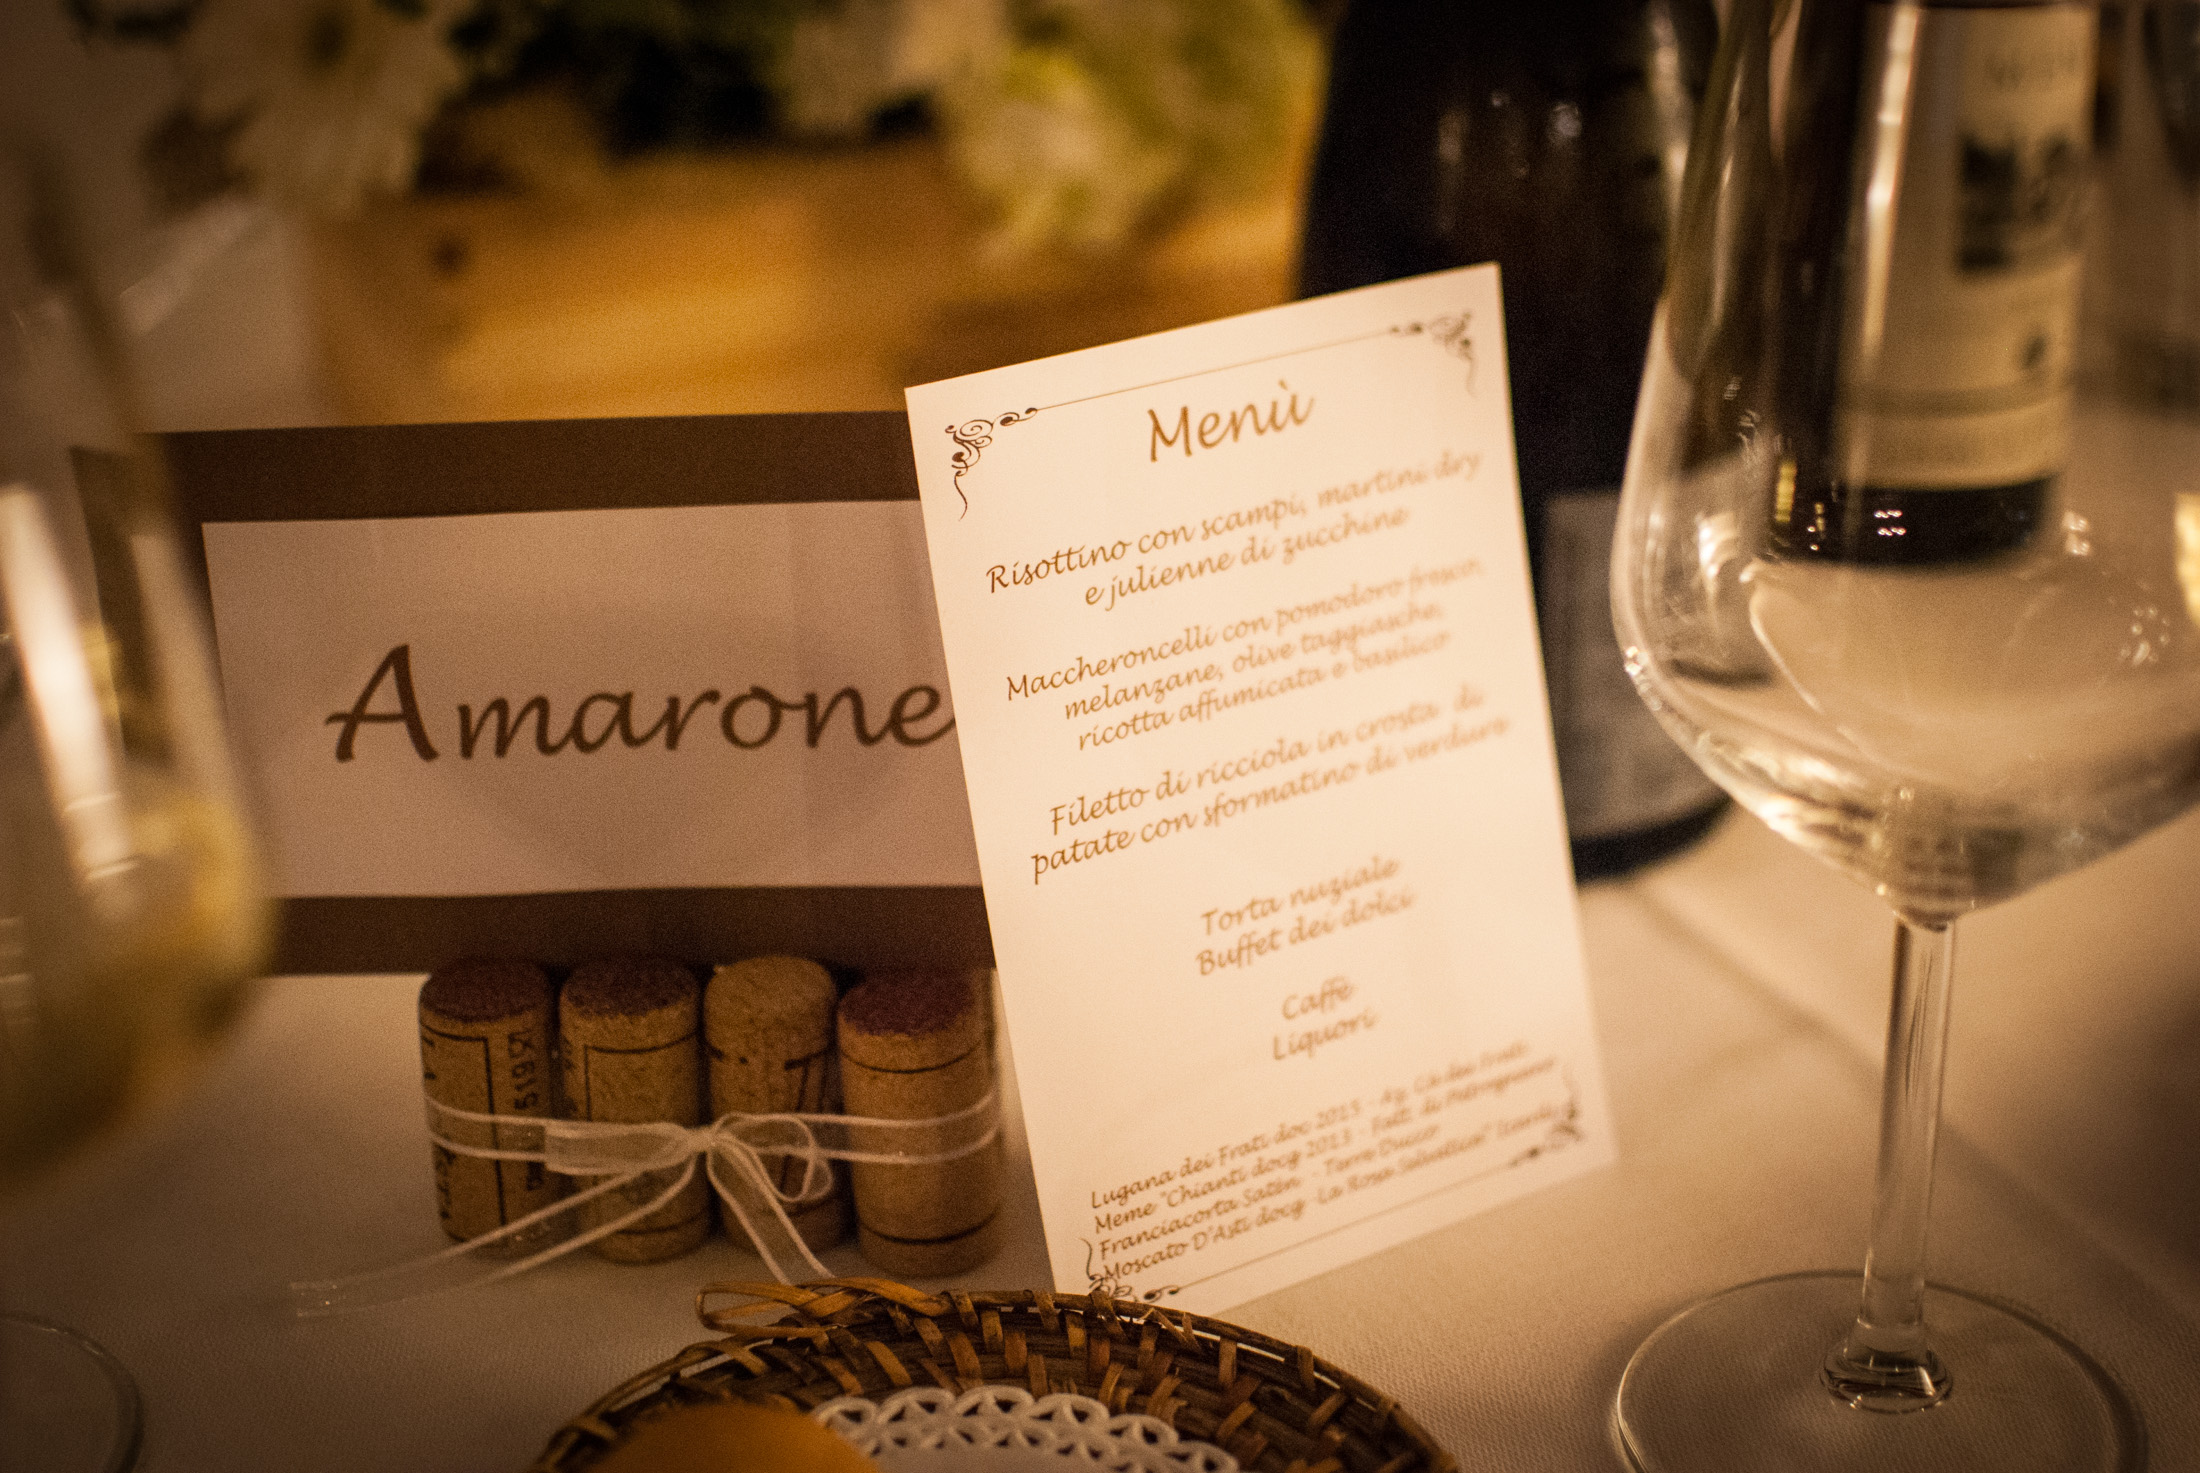 Amarone
Menù
Risottino con scampi, martini dry
e julienne di zucchine
Maccheroncelli con pomodoro fresco,
melanzane, olive taggiasche,
ricotta affumicata e basilico
Filetto di ricciola in crosta di
patate con sformatino di verdure
Torta nuziale
Buffet dei dolci
Caffè
Liquori
Lugana dei Frati doc 2015 - Az. Ca dei Frati
Meme "Chianti docg 2013 - Fatt. di Petrognano
Franciacorta Satèn - Torre Ducco
Moscato D'Asti docg -La Rosa Selvatica" Icardi
519